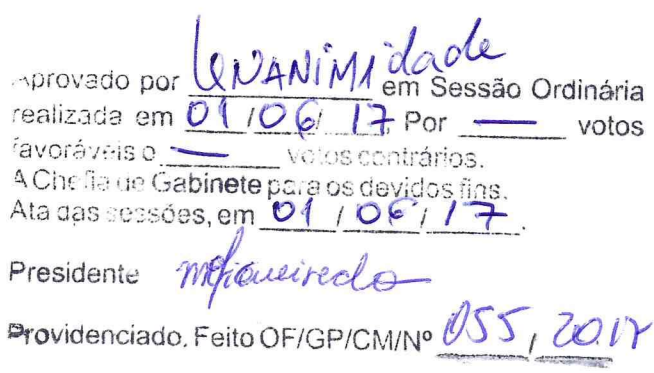 Aprovado por UNANIMIdade em Sessão Ordinária
realizada em 01/06/17, Por — votos
favoráveis e — votos contrários.
A Chefia de Gabinete para os devidos fins.
Ata das sessões, em 01/06/17.
Presidente
Providenciado. Feito OF/GP/CM/Nº 055, 2017